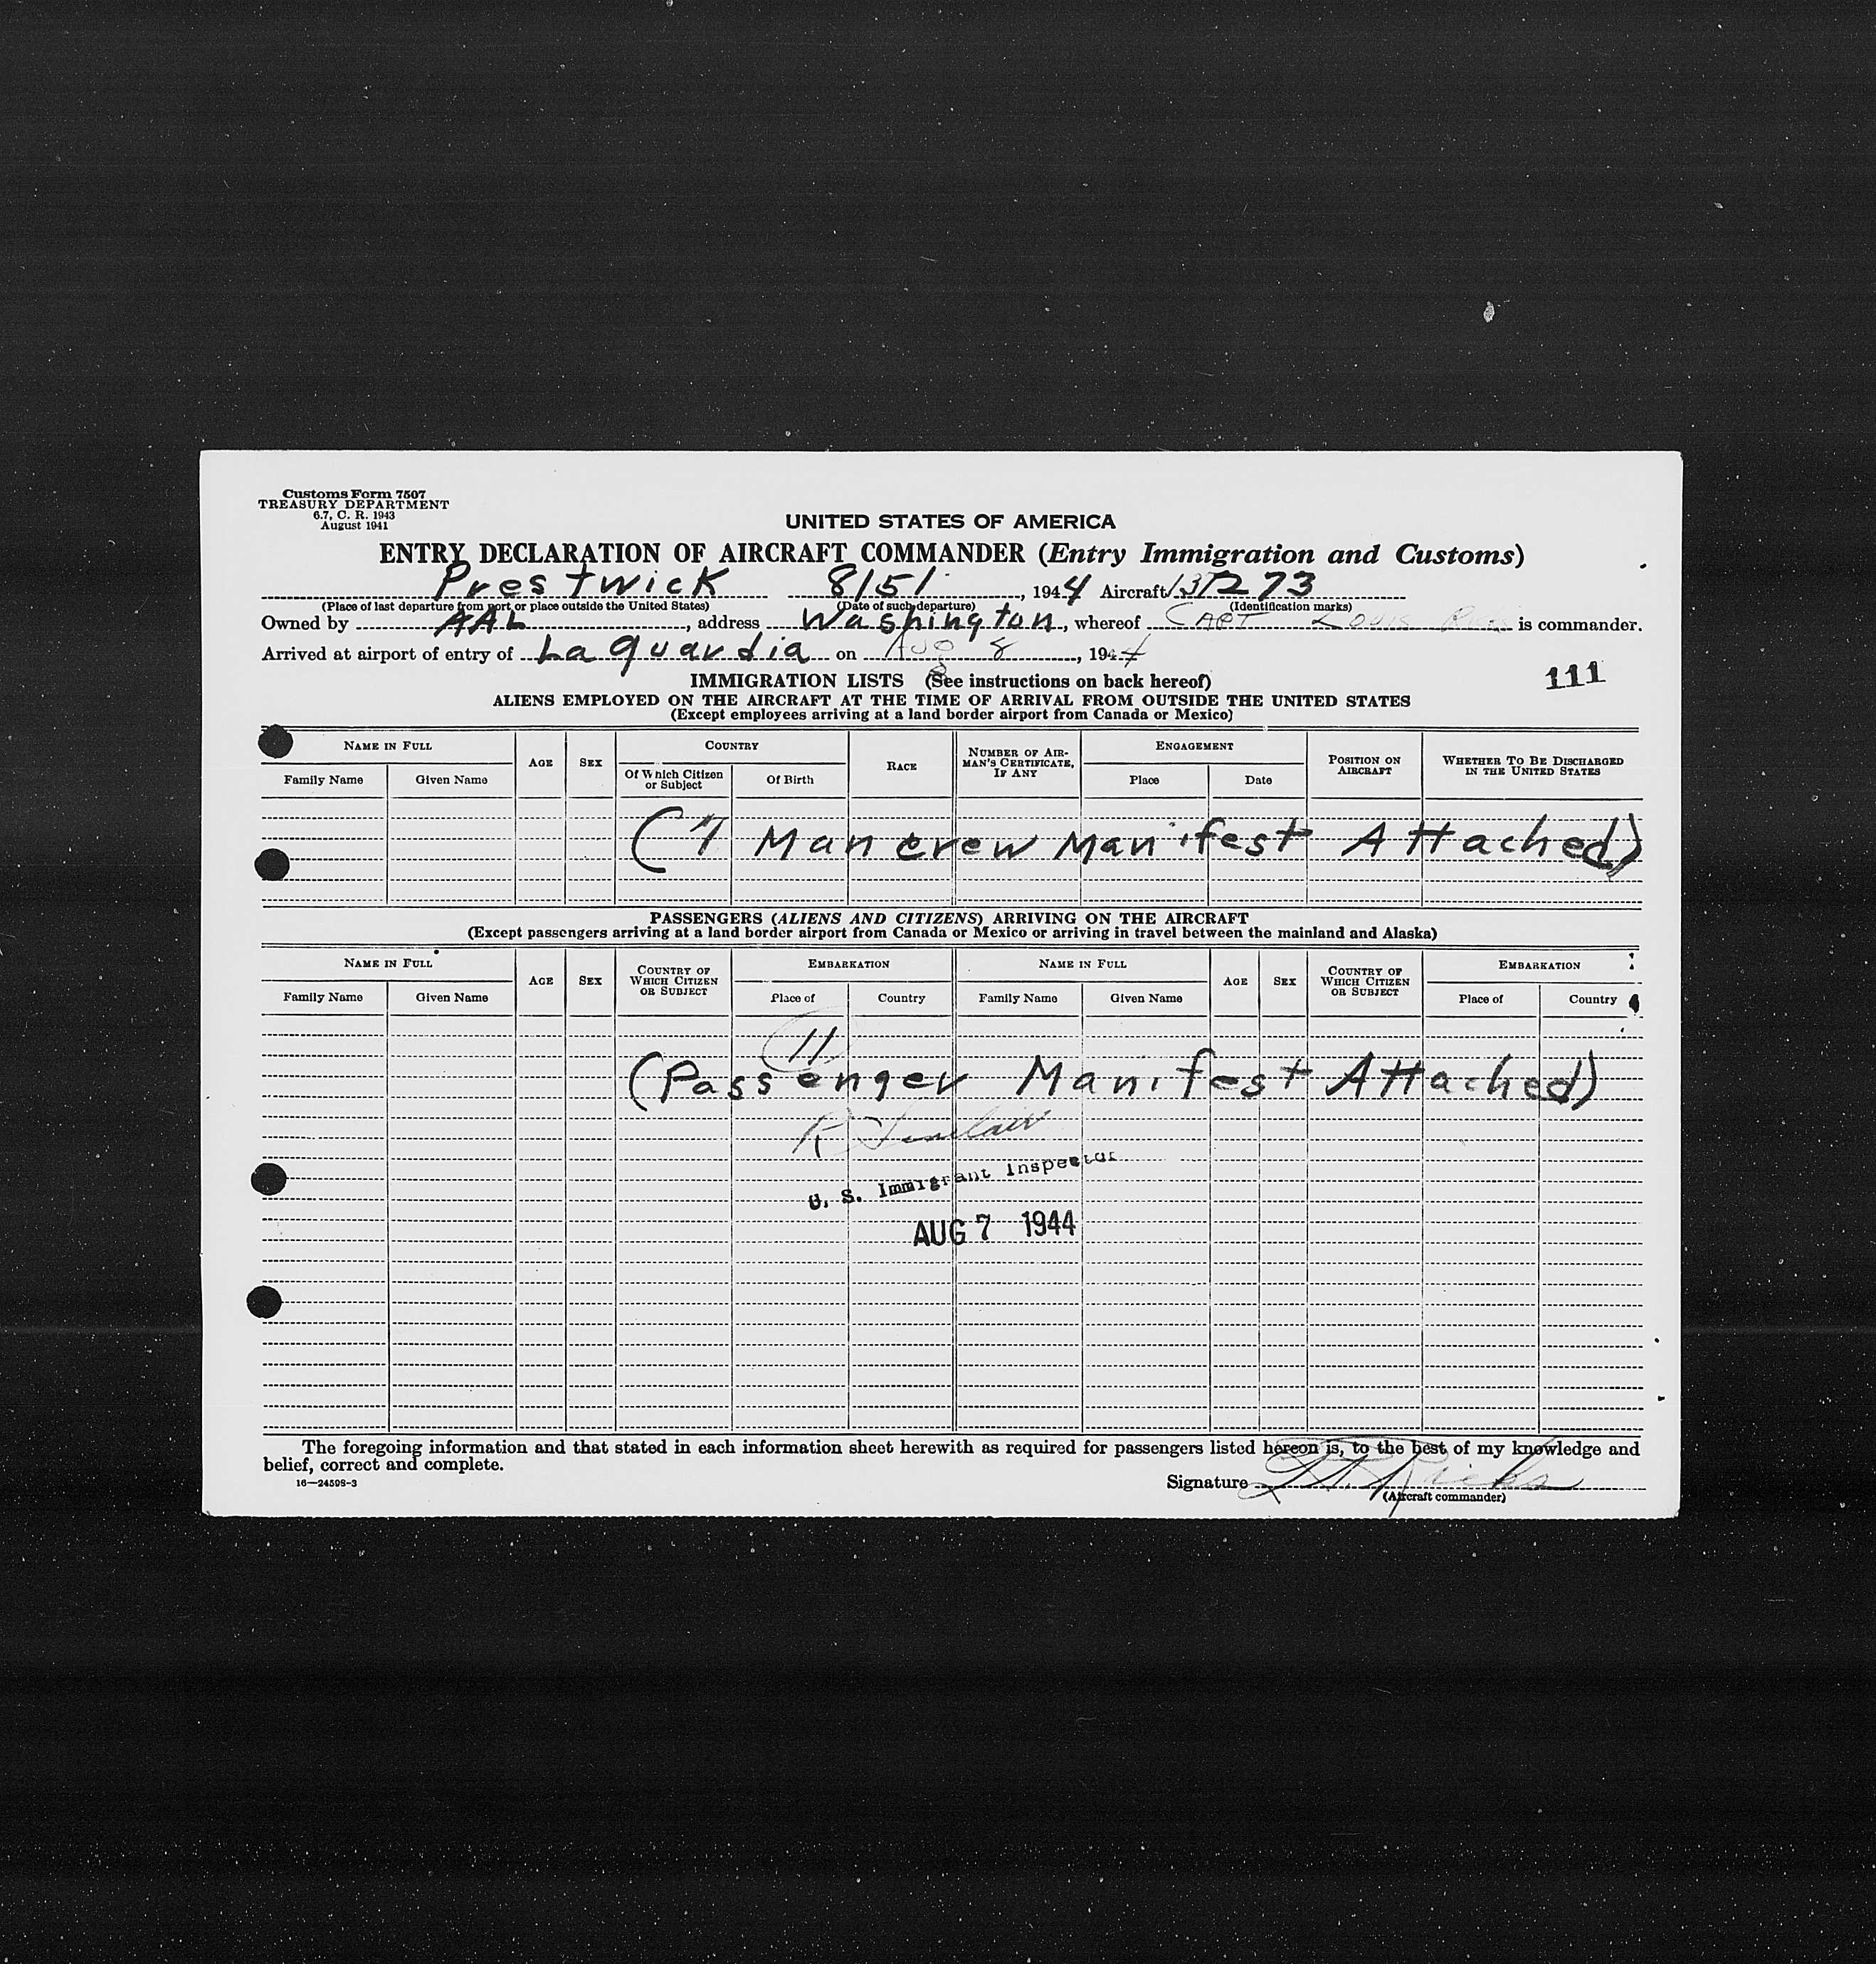 Customs Form 7507
TREASURY DEPARTMENT
6.7, C. R. 1943
August 1941
UNITED STATES OF AMERICA
ENTRY DECLARATION OF AIRCRAFT COMMANDER (Entry Immigration and Customs)
Prestwick 8/5/, 1944 Aircraft 37273
(Place of last departure from port or place outside the United States) (Date of such departure) (Identification marks)
Owned by AAL, address Washington, whereof CAPT Louis is commander.
Arrived at airport of entry of La Guardia on Aug 8, 1944
111
IMMIGRATION LISTS (See instructions on back hereof)
ALIENS EMPLOYED ON THE AIRCRAFT AT THE TIME OF ARRIVAL FROM OUTSIDE THE UNITED STATES
(Except employees arriving at a land border airport from Canada or Mexico)
NAME IN FULL AGE SEX COUNTRY RACE NUMBER OF AIRMAN'S CERTIFICATE, IF ANY ENGAGEMENT POSITION ON AIRCRAFT WHETHER TO BE DISCHARGED IN THE UNITED STATES
Family Name Given Name Of Which Citizen or Subject Of Birth Place Date
(7 Man crew Manifest Attached)
PASSENGERS (ALIENS AND CITIZENS) ARRIVING ON THE AIRCRAFT
(Except passengers arriving at a land border airport from Canada or Mexico or arriving in travel between the mainland and Alaska)
NAME IN FULL AGE SEX COUNTRY OF WHICH CITIZEN OR SUBJECT EMBARKATION NAME IN FULL AGE SEX COUNTRY OF WHICH CITIZEN OR SUBJECT EMBARKATION
Family Name Given Name Place of Country Family Name Given Name Place of Country
11
(Passenger Manifest Attached)
R Sinclair
U. S. Immigrant Inspector
AUG 7 1944
The foregoing information and that stated in each information sheet herewith as required for passengers listed hereon is, to the best of my knowledge and
belief, correct and complete.
16—24598-3
Signature Ricks
(Aircraft commander)